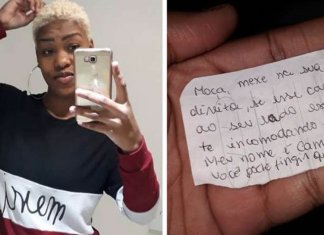 Moça, mexe no sua
direita, se esse ca
ao seu lado
te incomodando
Meu nome é Cam
você pode fingir q